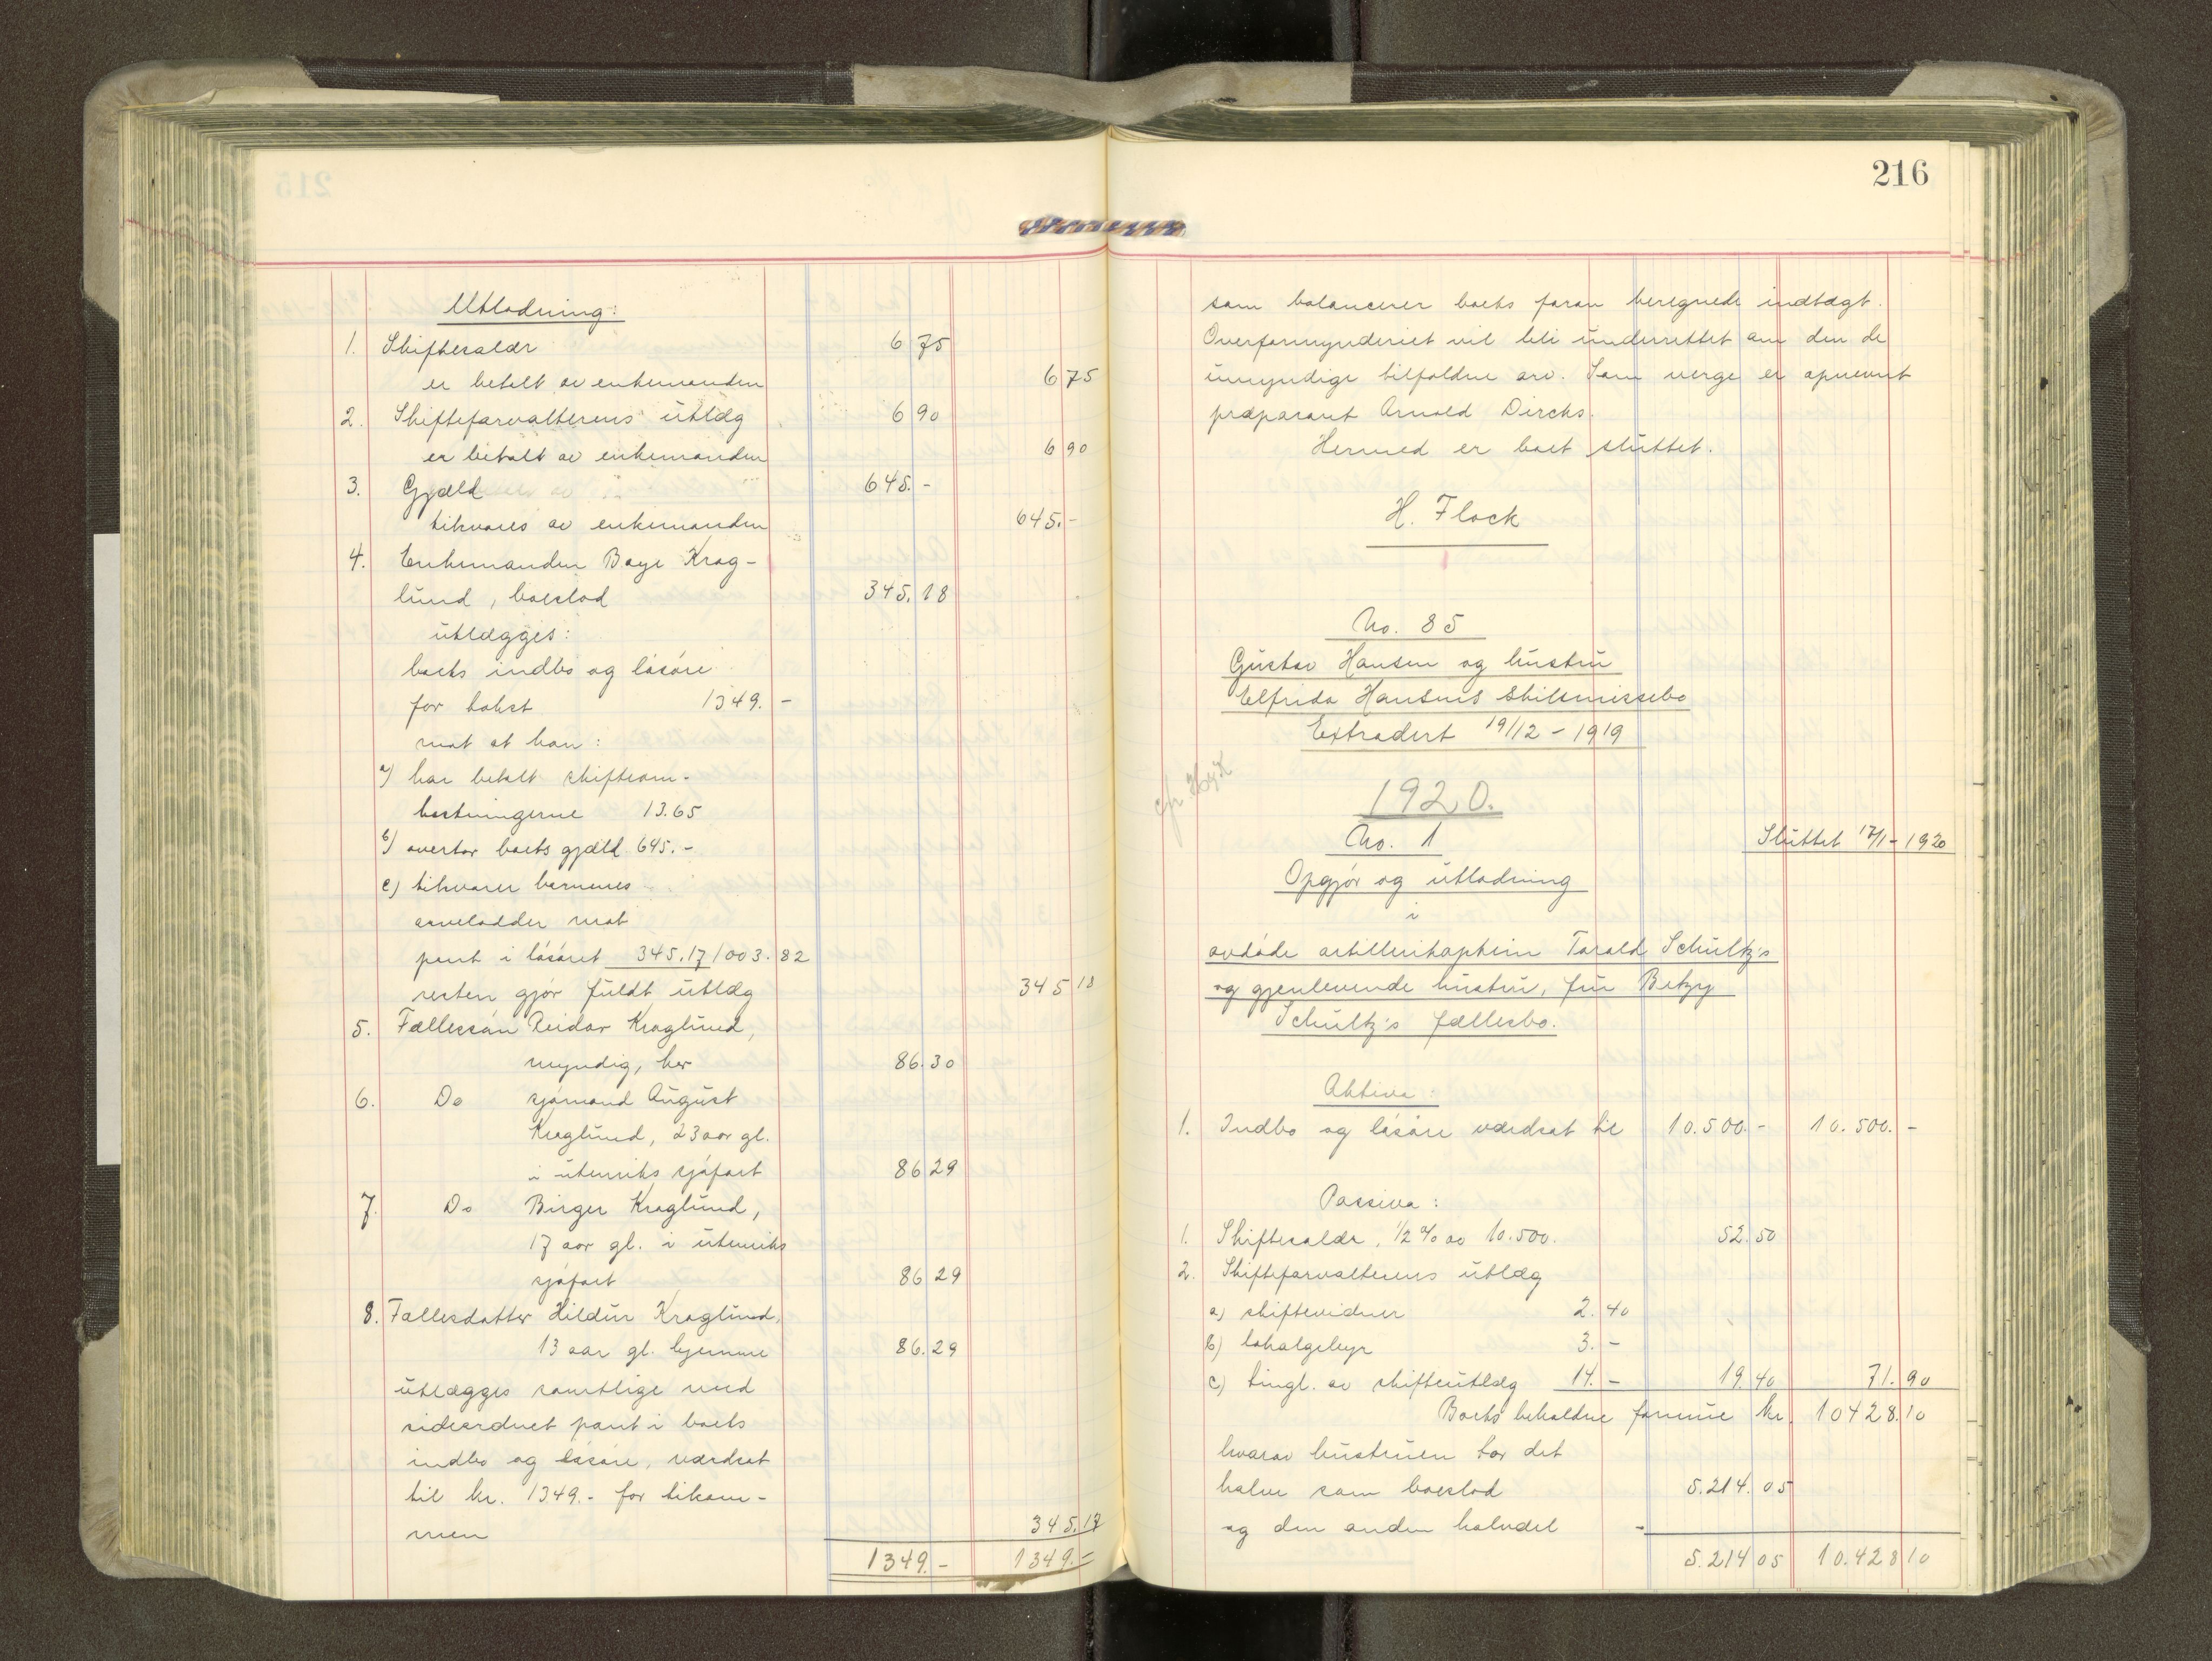 Utlodning:
1. Skiftesalær 6 75
er betalt av enkemanden 6 75
2. Skifteforvalterens utlæg 6 90
er betalt av enkemanden 6 90
3. Gjæld 645.-
tilsvares av enkemanden 645.-
4. Enkemanden Boye Krag-
lund, boeslod 345.18
utlægges:
boets indbo og løsøre
for takst 1349.-
mot at han:
a) har betalt skifteom-
kostningerne 13.65
b) overtar boets gjæld 645.-
c) tilsvarer barnenes
arvelodder mot
pant i løsøret 345.17 1003.82
resten gjør fuldt utlæg 345 18
5. Fællessøn Reidar Kraglund,
myndig, her 86.30
6. Do sjømand August
Kraglund, 23 aar gl.
i utenriks sjøfart 86 29
7. Do Birger Kraglund,
17 aar gl. i utenriks
sjøfart 86 29
8. Fællesdatter Hildur Kraglund,
13 aar gl. hjemme 86.29
utlægges samtlige med
sideordnet pant i boets
indbo og løsøre, værdsat
til kr. 1349.- for tilsam-
men 345.17
1349.- 1349.-
216
som balancerer boets foran beregnede indtægt.
Overformynderiet vil bli underrettet om den de
umyndige tilfaldne arv. Som verge er opnevnt
præparant Arnold Dircks.
Hermed er boet sluttet.
H. Flock
No. 85
Gustav Hansen og hustru
Elfrida Hansens Skilsmissebo
Extradert 19/12 - 1919
1920.
No. 1 Sluttet 17/1 - 1920
Opgjør og utlodning
i
avdøde artillerikaptein Torald Schultz's
og gjenlevende hustru, fru Betzy
Schultz's fællesbo.
Aktiva:
1. Indbo og løsøre værdsat til 10.500.- 10.500.-
Passiva:
1. Skiftesalær, 1/2 % av 10.500. 52.50
2. Skifteforvalterens utlæg
a) skiftevidner 2.40
b) lokalgebyr 3.-
c) tingl. av skifteutlæg 14.- 19.40 71.90
Boets beholdne formue kr. 10428.10
hvorav hustruen tar det
halve som boeslod 5.214.05
og den anden halvdel -
5.214 05 10.428 10